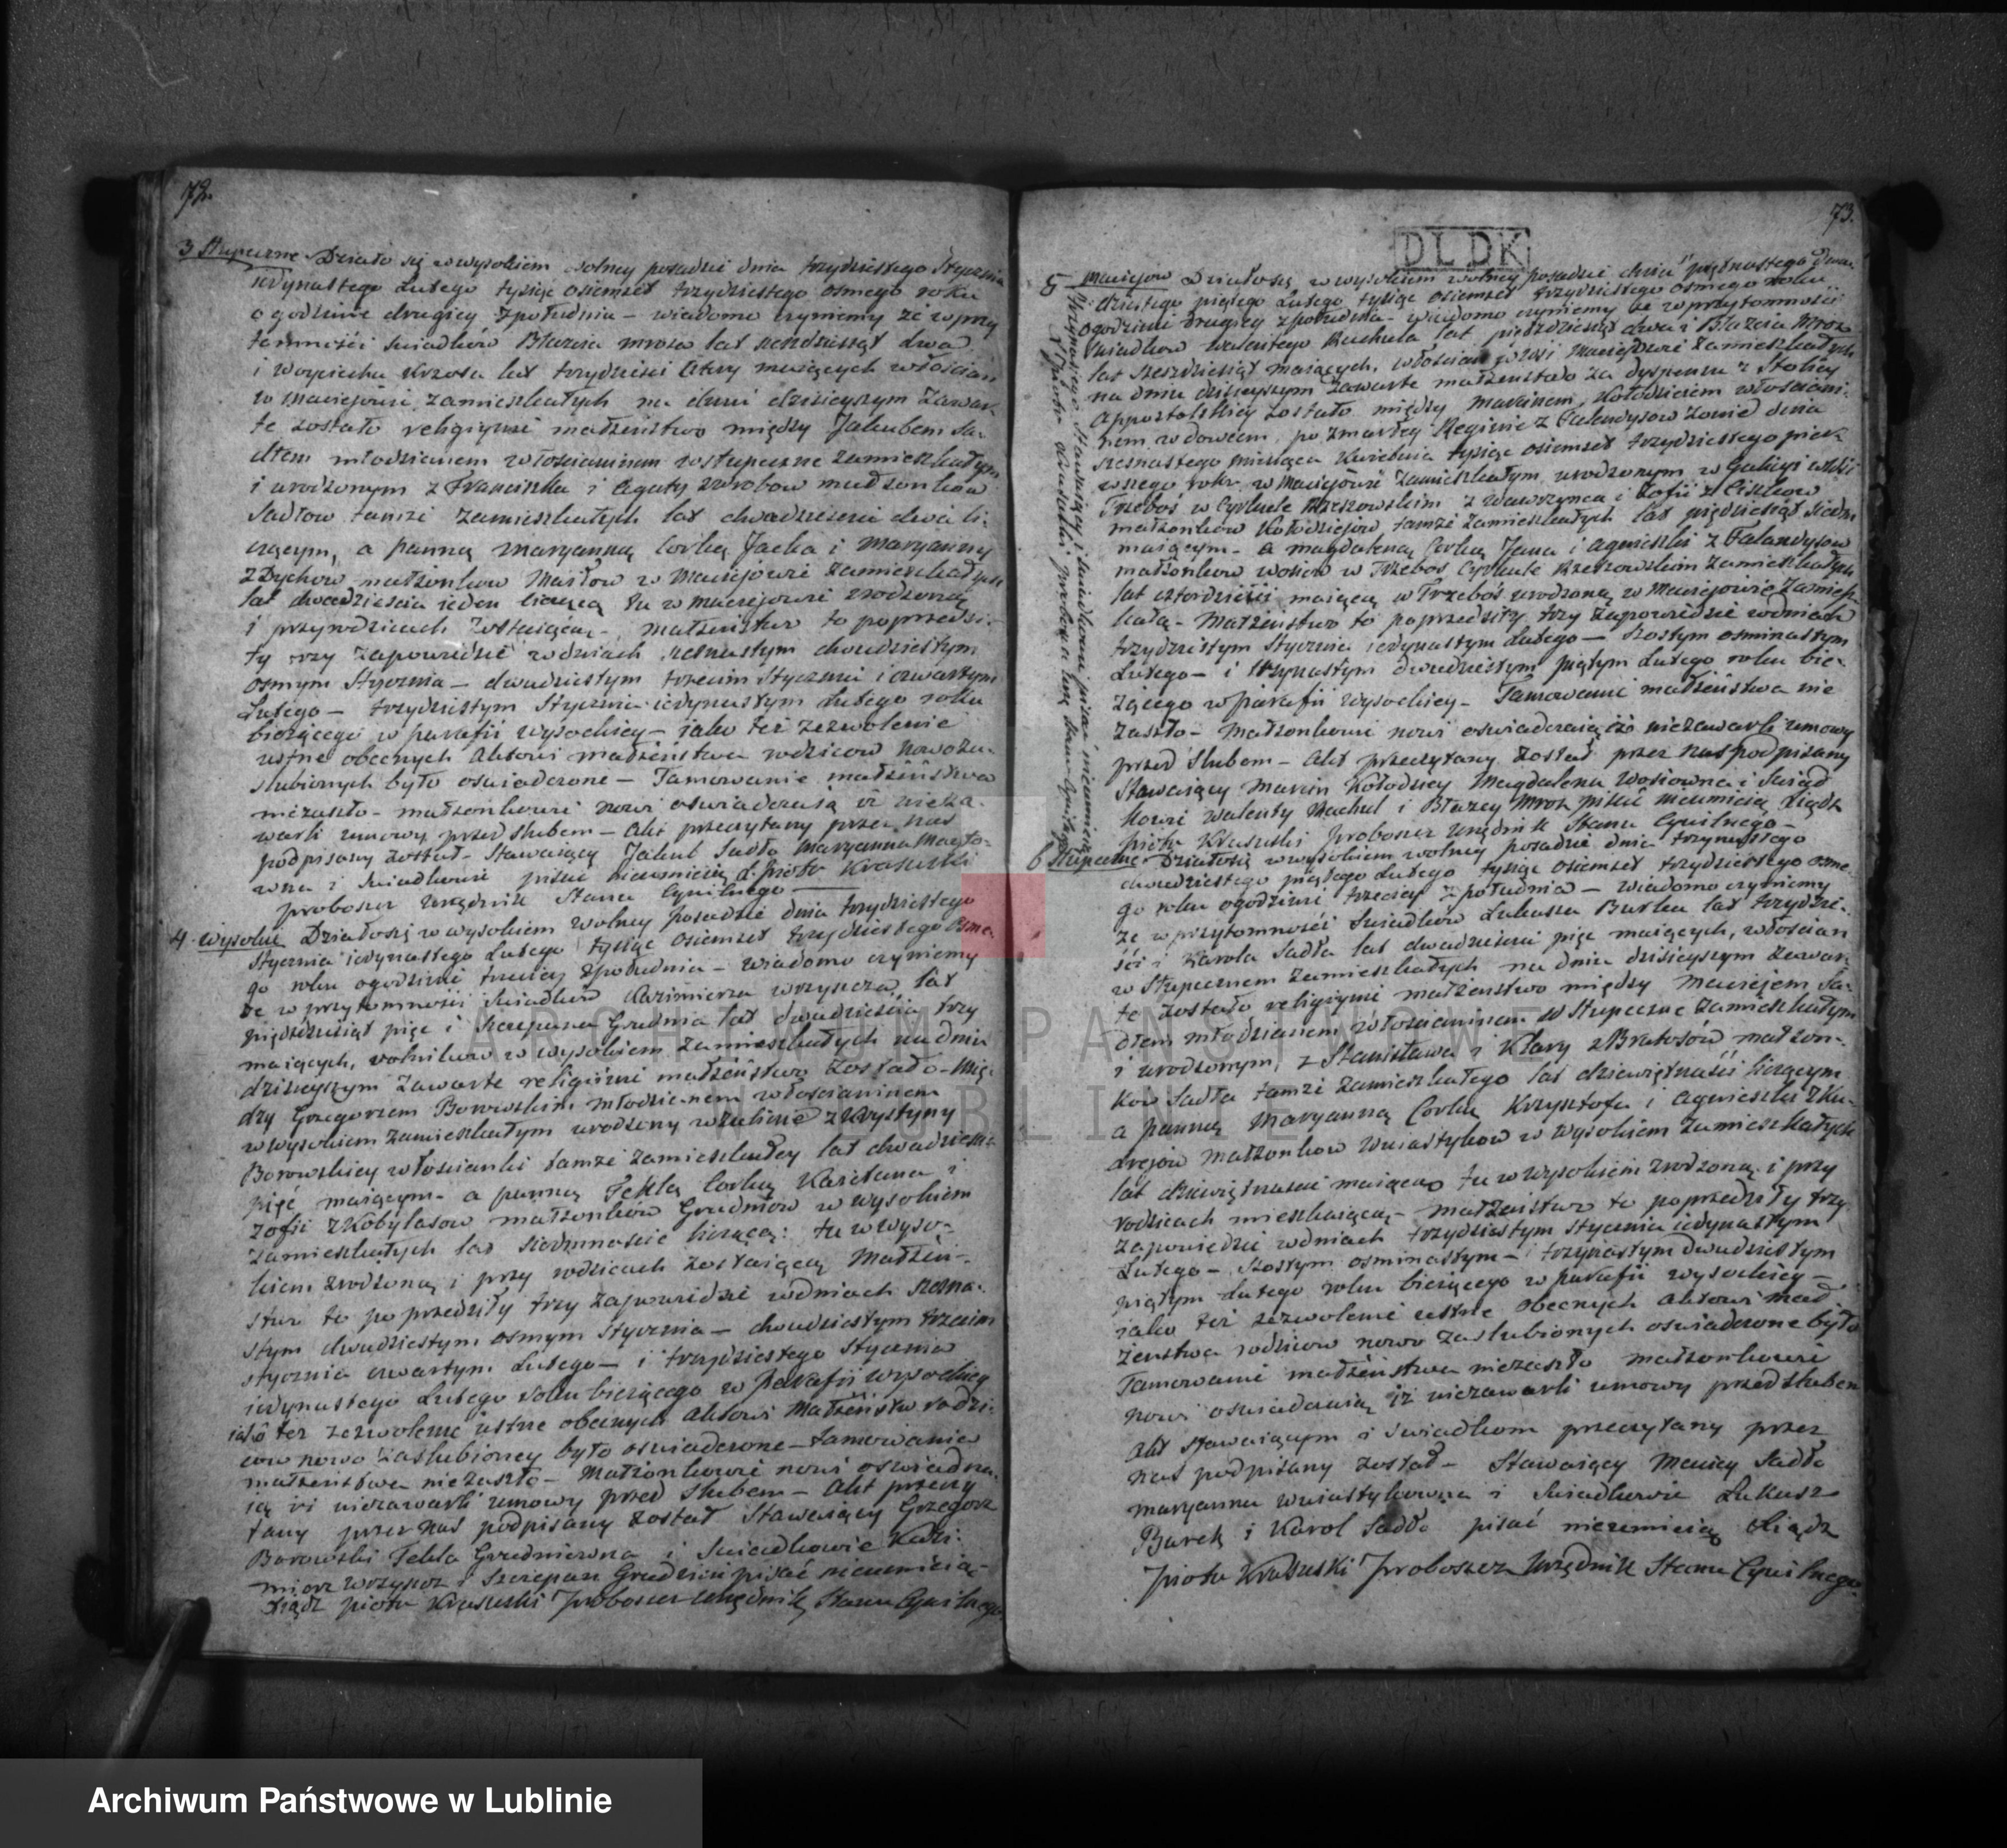 72.
3 Stupeczne Działo się w wysokiem wolney posadzie dnia trzydziestego Stycznia
iedynastego Lutego tysiąc osiemset trzydziestego osmego roku
o godzinie drugiey z południa – wiadomo czyniemy że w przy
tomności Swiadków Błażeia Mroza lat sześćdziesiąt dwa
i Woyciecha lat trzydzieści cztery maiących włościan
w Maciejowie zamieszkałych na dniu dzisieyszym zawar
te zostało religiyne małżeństwo między Jakubem Sa-
dłem młodzianem włościaninem w Stupeczne zamieszkałym
i urodzonym z Franciszka i Agaty małżonków
Sadłow tamże zamieszkałych lat dwadzieścia dwa li-
czącym, a panną Maryanną Corką Jacka i Maryanny
z Dychów małżonków Masłow w Maciejowie zamieszkałych
lat dwadzieścia ieden liczącą tu w Maciejowie zrodzoną
i przy rodzicach zostaiącą – małżeństwo to poprzedzi-
ły trzy zapowiedzie w dniach szesnastym dwudziestym
osmym Stycznia – dwudziestym trzecim Stycznia i czwartym
Lutego – trzydziestym Stycznia iedynastym Lutego roku
bieżącego w parafii wysockiey – iako też zezwolenie
ustne obecnych Aktowi małżeństwa rodziców nowoza-
slubionych było oswiadczone – Tamowanie małżeństwa
niezaszło – małżonkowie nowi oswiadczaią iż nieza-
warli umowy przed slubem – Akt przeczytany przez nas
podpisany został – Stawaiący Jakub Sadło Maryanna Masło-
wna i Swiadkowie pisać nieumieią X. Piotr Krasuski
proboszcz Urzędnik Stanu Cywilnego
4 Wysokie Działo się w wysokiem wolney posadzie dnia trzydziestego
Stycznia iedynastego Lutego tysiąc osiemset trzydziestego osme-
go roku o godzinie trzeciey z południa – wiadomo czyniemy
że w przytomności Swiadków Kazimierza Wrzyszcza lat
pięćdziesiąt pięć i Szczepana Grudnia lat dwadzieścia trzy
maiących, rolników w wysokiem zamieszkałych na dniu
dzisieyszym zawarte religiyne małżeństwo zostało – mię-
dzy Grzegorzem Borowskim młodzianem włościaninem
w wysokiem zamieszkałym urodzony w Lublinie z Krystyny
Borowskiey włościanki tamże zamieszkałey lat dwadzieścia
pięć maiącym – a panną Teklą Corką Kaietana i
Zofii z Kobylasow małżonków Grudniow w wysokiem
zamieszkałych lat siedmnaście liczącą: tu w wyso-
kiem zrodzoną i przy rodzicach zostaiącą Małżeń-
stwo to poprzedziły trzy zapowiedzie w dniach szesna-
stym dwudziestym osmym Stycznia – dwudziestym trzecim
stycznia czwartym Lutego – i trzydziestego Stycznia
iedynastego Lutego roku bieżącego w parafii wysockiey
iako też zezwolenie ustne obecnych Aktowi Małżeństw rodzi-
cow nowo zaslubioney było oswiadczone – tamowanie
małżeństwa niezaszło – Małżonkowie nowi oswiadcza-
ią iż niezawarli umowy przed slubem – Akt przeczy
tany przez nas podpisany został Stawaiący Grzegorz
Borowski Tekla Grudniowna i Swiadkowie Kazi-
mierz Wrzyszcz i Szczepan Grudzień pisać nieumieią –
Xiądz Piotr Krasuski Proboszcz Urzędnik Stanu Cywilnego
73.
DLDK
5 Maciejow Działo się w wysokiem wolney posadzie dnia trzynastego dwu-
dziestego piątego Lutego tysiąc osiemset trzydziestego osmego roku
o godzinie drugiey z południa – wiadomo czyniemy że w przytomności
Swiadków Walentego Machula lat pięćdziesiąt dwa i Błażeia Mroza
lat sześćdziesiąt maiących, włościan w wsi Maciejowie zamieszkałych
na dniu dzisieyszym zawarte małżeństwo za dyspensą z Stolicy
Appostolskiey zostało między Marcinem Kołodzieiem włosciani-
nem wdowcem po zmarłey Reginie z Falandysow żonie dnia
szesnastego miesiąca Kwietnia tysiąc osiemset trzydziestego pier-
wszego roku w Maciejowie zamieszkałym urodzonym w Galicyi wsi
Trzeboś w Cyrkule Rzeszowskim z Wawrzynca i Zofii z
małżonków Kołodziejów tamże zamieszkałych lat pięćdziesiąt siedm
maiącym – a Magdaleną Corką Jana i Agnieszki z Falandysow
małżonków Wosiow w Trzeboś Cyrkule Rzeszowskim zamieszkałych
lat czterdzieści maiącą w Trzeboś urodzoną w Maciejowie zamiesz-
kałą – Małżeństwo to poprzedziły trzy zapowiedzie w dniach
trzydziestym Stycznia iedynastym Lutego – szostym osmnastym
Lutego – i trzynastym dwudziestym piątym Lutego roku bie-
żącego w parafii wysockiey – Tamowanie małżeństwa nie
zaszło – Małżonkowie nowi oswiadczaią iż niezawarli umowy
przed slubem – Akt przeczytany został przez nas podpisany
Stawaiący Marcin Kołodziey Magdalena Wosiowna i Swiad
kowie Walenty Machul i Błażey Mroz pisać nieumieią Xiądz
Piotr Krasuski Proboszcz Urzędnik Stanu Cywilnego –
6 Stupeczne Działo się w wysokiem wolney posadzie dnia trzynastego
dwudziestego piątego Lutego tysiąc osiemset trzydziestego osme-
go roku o godzinie trzeciey z południa – wiadomo czyniemy
że w przytomności Swiadków Łukasza Burka lat trzydzie-
ści i Karola Sadła lat dwadzieścia pięć maiących, włościan
w Stupecznem zamieszkałych na dniu dzisieyszym zawar-
te zostało religiyne małżeństwo między Maciejem Sa-
dłem młodzianem włościaninem w Stupeczne zamieszkałym
i urodzonym, z Stanisława i Klary z Bratosów małżon-
kow Sadła tamże zamieszkałego lat dziewiętnaście liczącym
a panną Maryanną Corką Krzysztofa i Agnieszki z Ku-
drejów małżonków Wniastykow w wysokiem zamieszkałych
lat dziewiętnaście maiącą tu w wysokiem zrodzoną i przy
rodzicach mieszkaiącą – małżeństwo to poprzedziły trzy
zapowiedzie w dniach trzydziestym stycznia iedynastym
Lutego – szostym osmnastym – i trzynastym dwudziestym
piątym Lutego roku bieżącego w parafii wysockiey –
iako też zezwolenie ustne obecnych Aktowi mał
żeństwa rodzicow nowo zaslubionych oswiadczone było
Tamowanie małżeństwa niezaszło małżonkowie
nowi oswiadczaią iż niezawarli umowy przed slubem
Akt stawaiącym i swiadkom przeczytany przez
nas podpisany został – Stawaiący Maciey Sadło
Maryanna Wniastykowna i Swiadkowie Łukasz
Burek i Karol Sadło pisać nieumieią Xiądz
Piotr Krasuski Proboszcz Urzędnik Stanu Cywilnego
ARCHIWUM PAŃSTWOWE
W LUBLINIE
Archiwum Państwowe w Lublinie